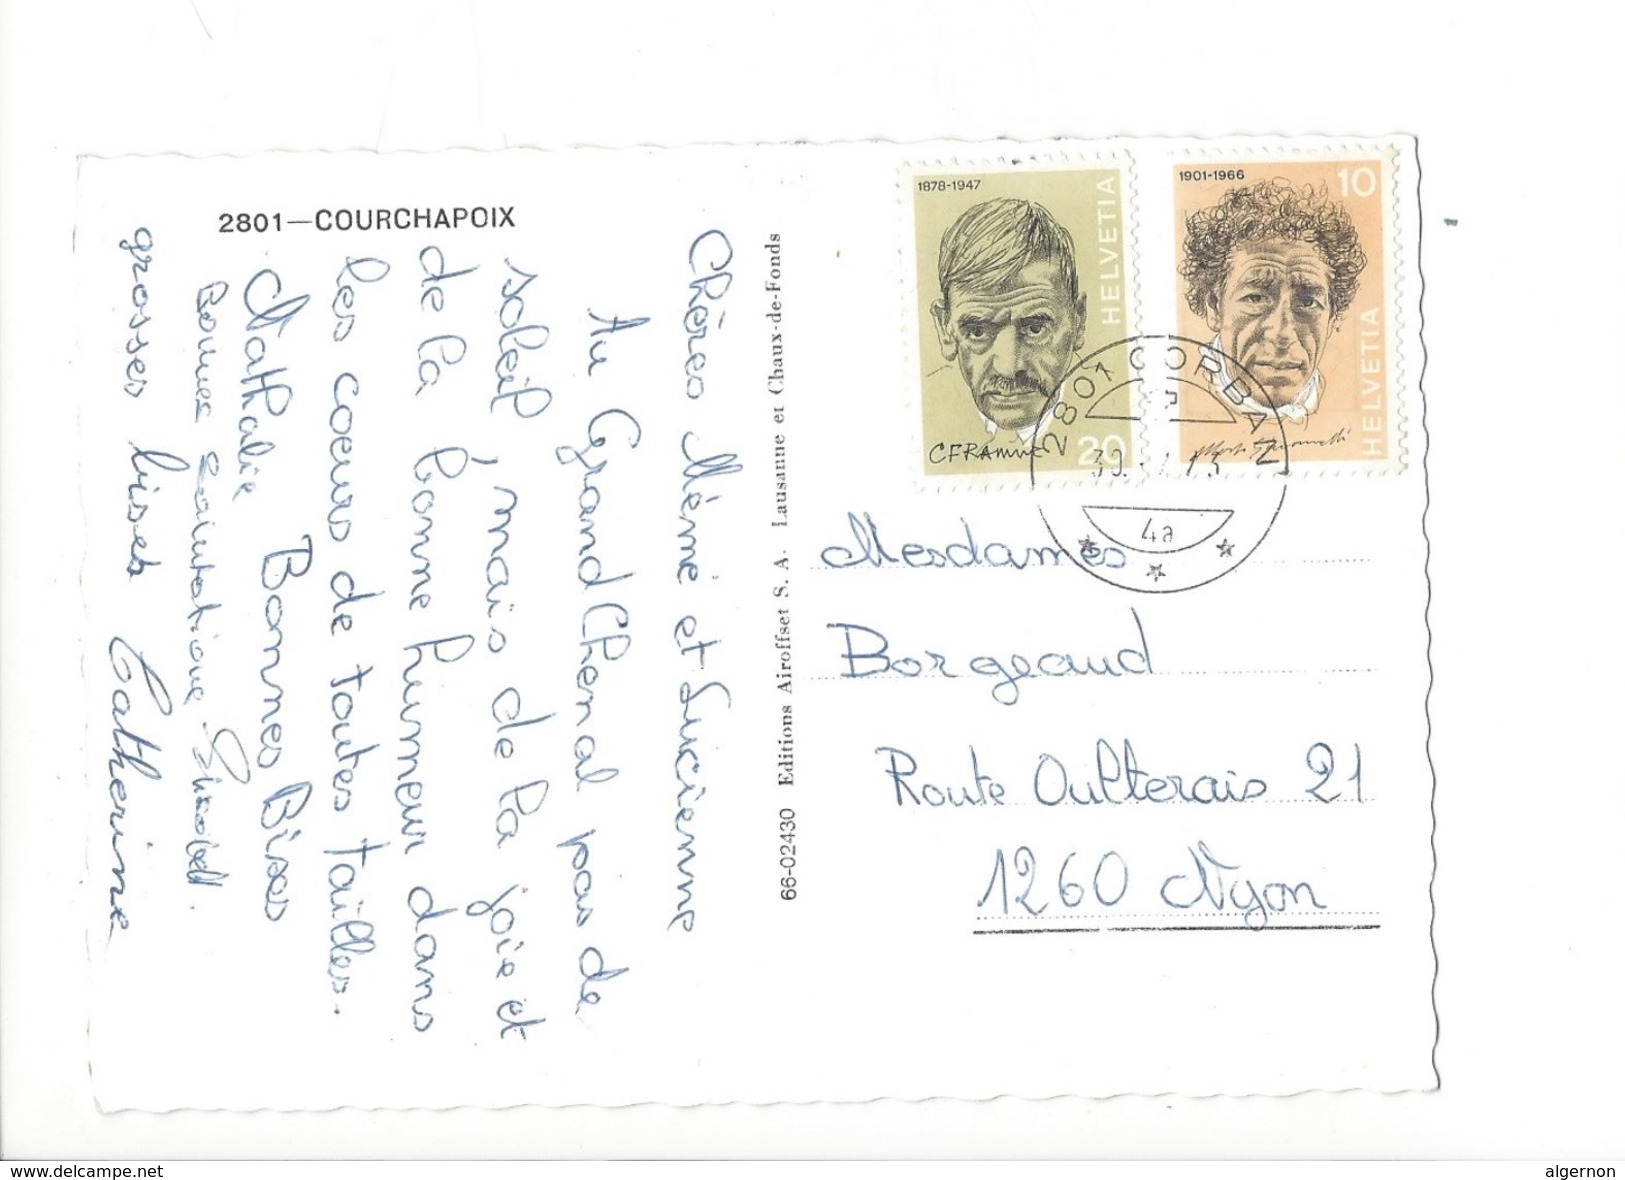 2801—COURCHAPOIX
Chères Mémé et Lucienne
Au Grand Chenal pas de
soleil, mais de la joie et
de la bonne humeur dans
les coeurs de toutes tailles.
Nathalie Bonnes Bises
Bonnes salutations
grosses bises Catherine
66-02430 Editions Airoffset S. A. Lausanne et Chaux-de-Fonds
1878-1947
HELVETIA
C F RAMUZ
20
1901-1966
10
HELVETIA
Alberto Giacometti
2801 CORBAN
4a
Mesdames
Borgeaud
Route Oulterais 21
1260 Nyon
www.delcampe.net
algernon